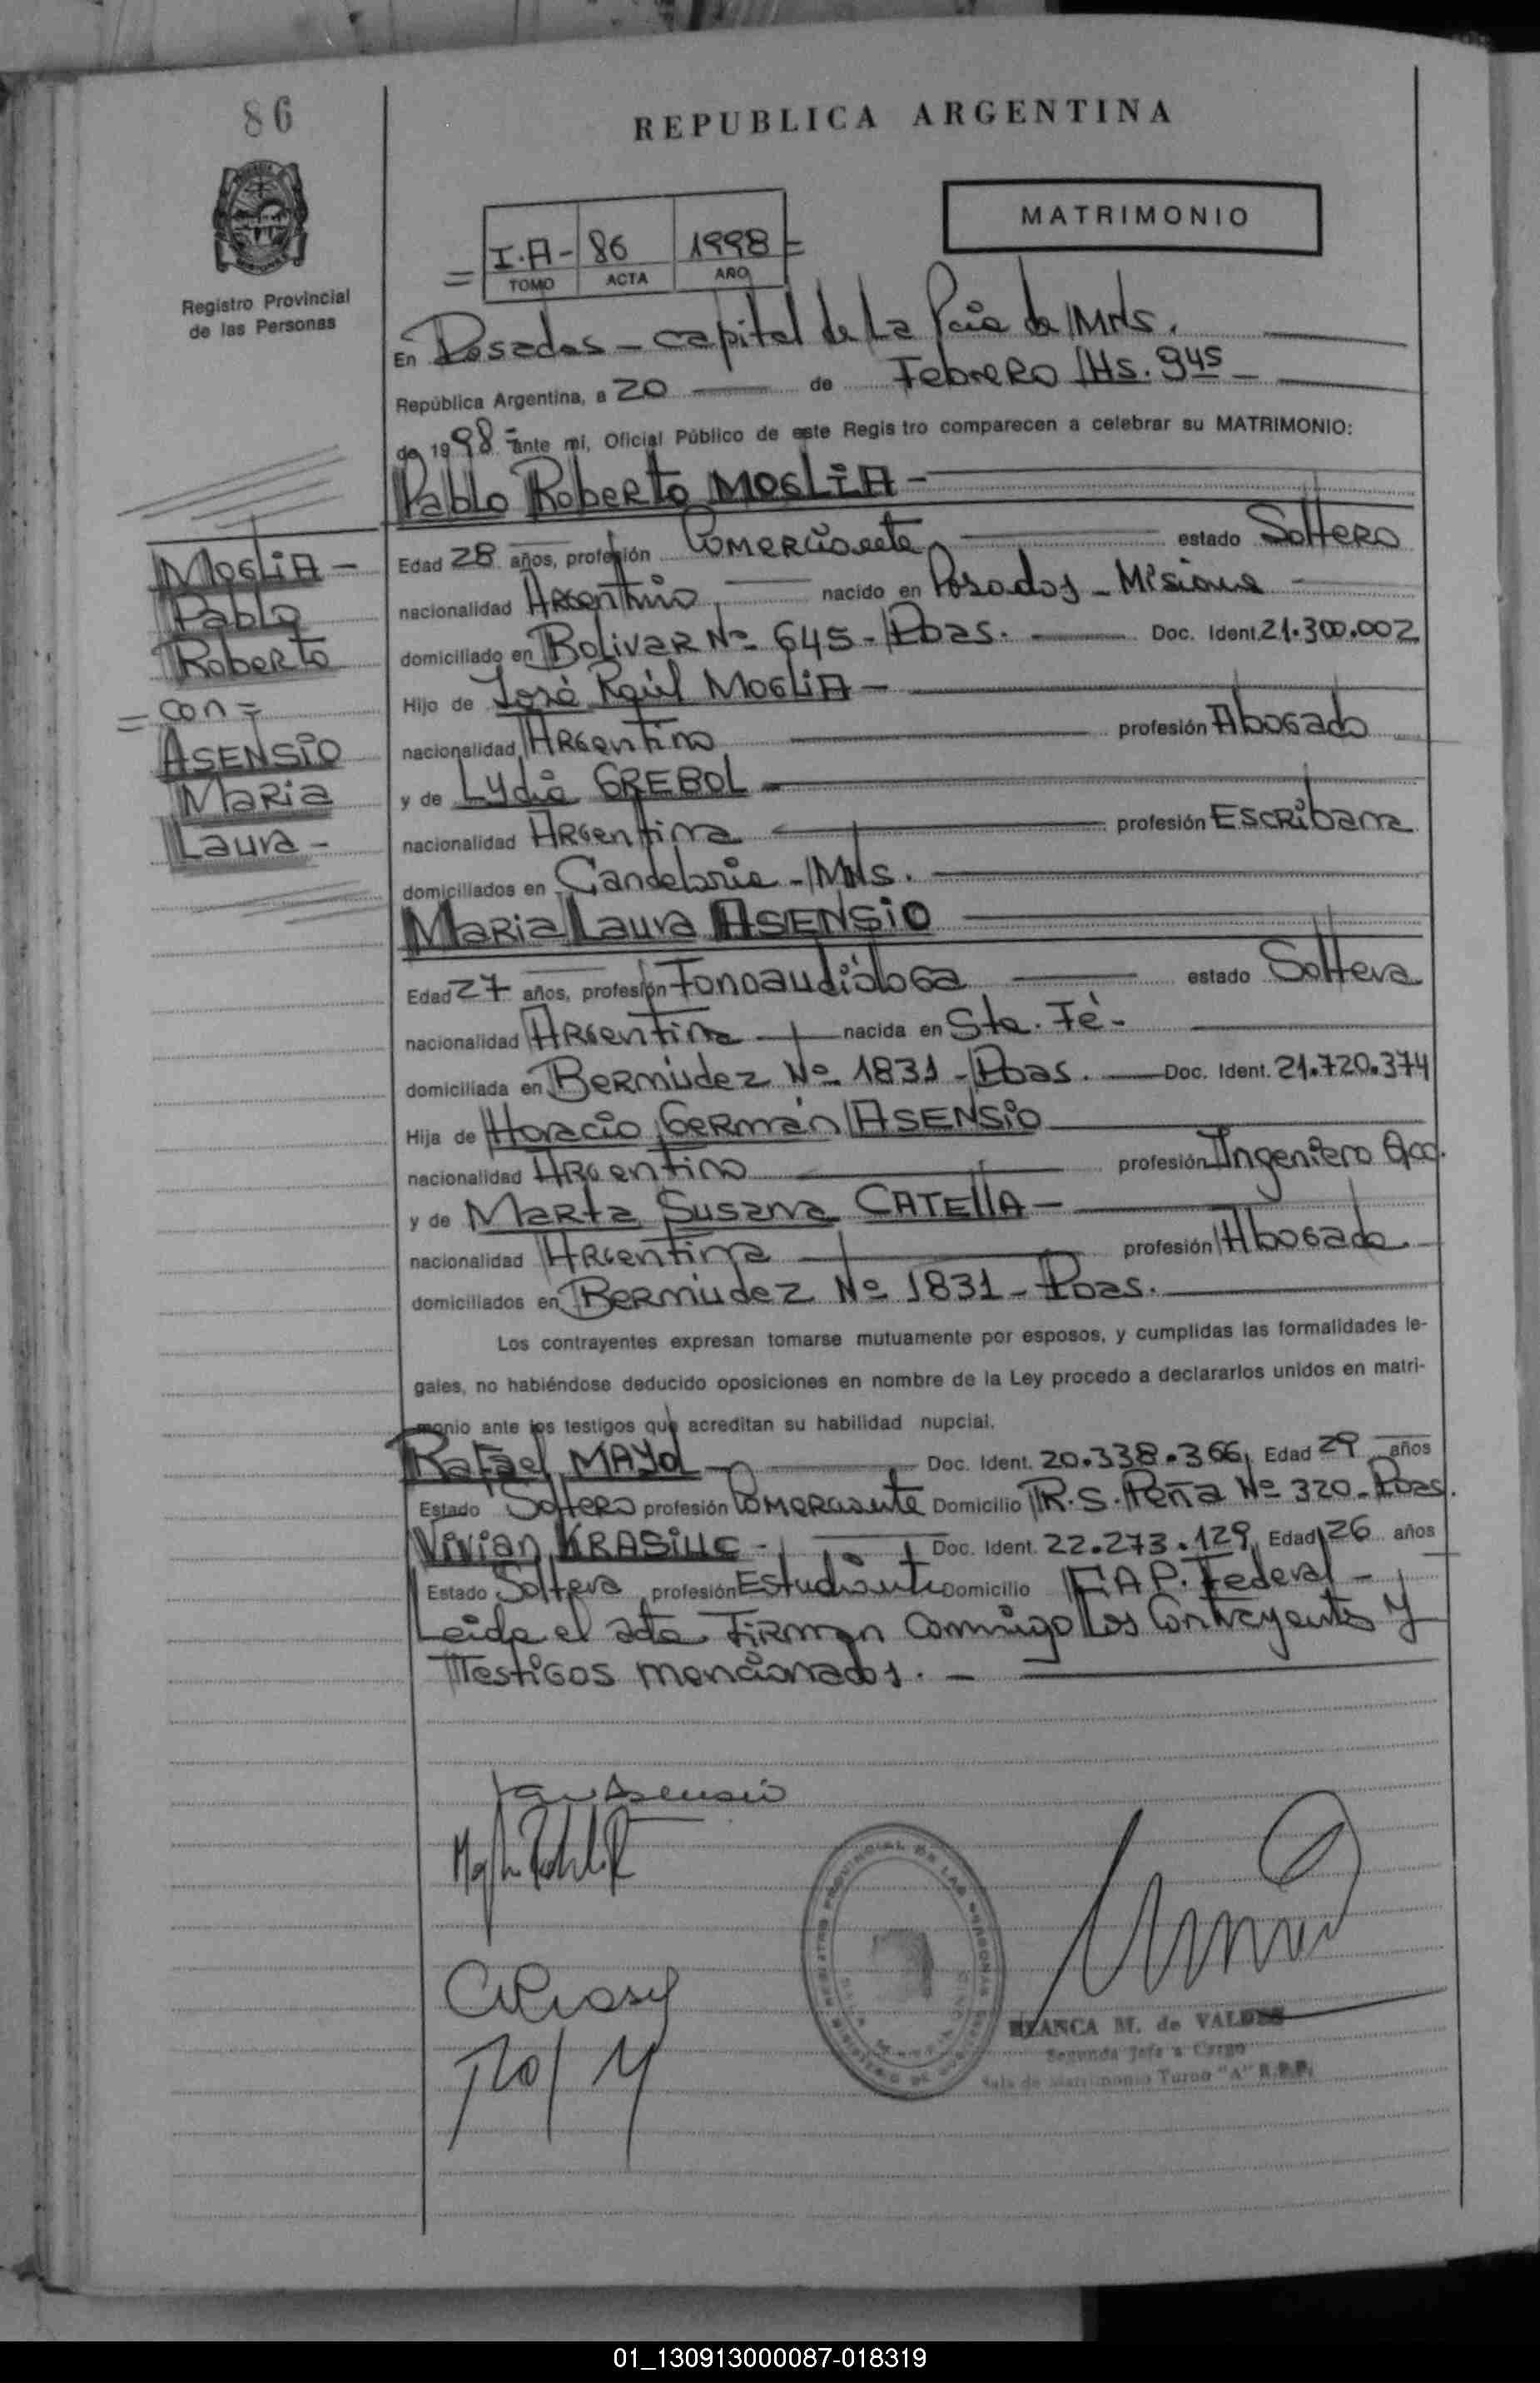 86
REPUBLICA ARGENTINA
MATRIMONIO
I.A - 86 1998 =
= TOMO ACTA AÑO
Registro Provincial
de las Personas
En Posadas - capital de La Pcia de Mnes.
República Argentina, a 20 de Febrero Hs. 945
de 1998 - ante mi, Oficial Público de este Regis tro comparecen a celebrar su MATRIMONIO:
Pablo Roberto MOGLIA -
MOGLIA -
Pablo
Roberto
= con =
ASENSIO
Maria
Laura -
Edad 28 años, profesión Comerciante estado Soltero
nacionalidad Argentino nacido en Posadas - Misiones
domiciliado en Bolivar Nº 645 - Pdas. Doc. Ident. 21.300.002
Hijo de José Raúl MOGLIA -
nacionalidad Argentino profesión Abogado
y de Lydia GREBOL -
nacionalidad Argentina profesión Escribana
domiciliados en Candelaria - Mnes.
Maria Laura ASENSIO
Edad 27 años, profesión Fonoaudióloga estado Soltera
nacionalidad Argentina nacida en Sta. Fé -
domiciliada en Bermudez Nº 1831 - Pdas. Doc. Ident. 21.720.374
Hija de Horacio Germán ASENSIO
nacionalidad Argentino profesión Ingeniero
y de Marta Susana CATELLA -
nacionalidad Argentina profesión Abogada
domiciliados en Bermudez Nº 1831 - Pdas.
Los contrayentes expresan tomarse mutuamente por esposos, y cumplidas las formalidades le-
gales, no habiéndose deducido oposiciones en nombre de la Ley procedo a declararlos unidos en matri-
monio ante los testigos que acreditan su habilidad nupcial.
Rafael MAYOL - Doc. Ident. 20.338.366, Edad 29 años
Estado Soltero profesión Comerciante Domicilio R.S. Peña Nº 320 - Pdas.
Vivian - Doc. Ident. 22.273.129, Edad 26 años
Estado Soltera profesión Estudiante Domicilio CAP. Federal -
Leida el acta Firman Conmigo Los Contrayentes y
Testigos mencionados. -
BLANCA M. de VALDES
Segunda Jefa a Cargo
Sala de Matrimonio Turno "A" R.P.P.
01_130913000087-018319